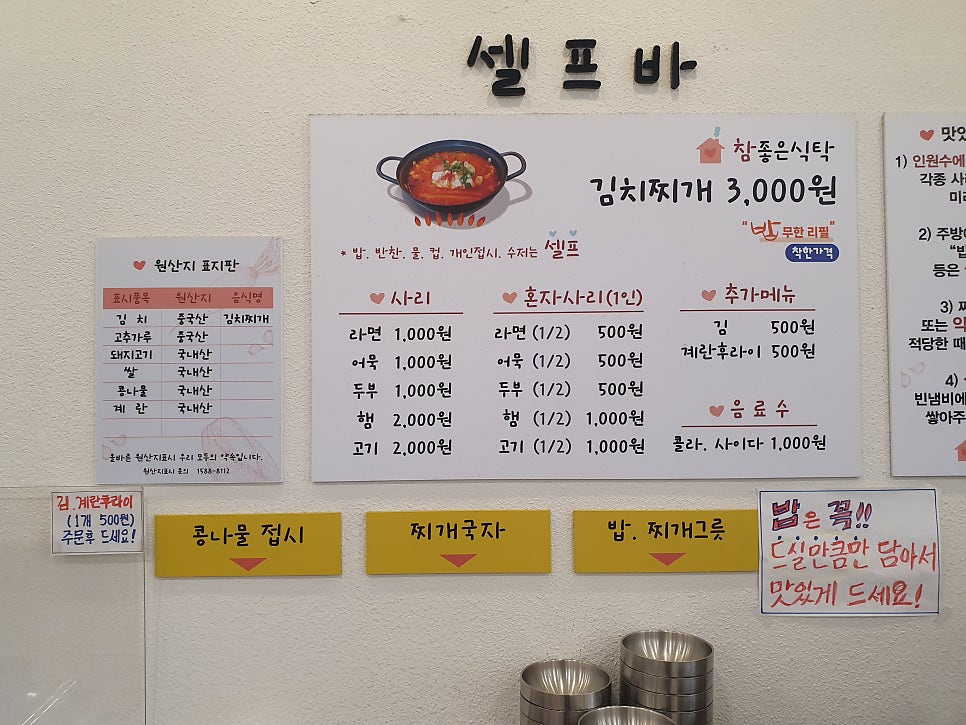 셀프바
참좋은식탁
김치찌개 3,000원
"밥 무한 리필"
착한가격
* 밥. 반찬. 물. 컵. 개인접시. 수저는 셀프
사리
라면 1,000원
어묵 1,000원
두부 1,000원
햄 2,000원
고기 2,000원
혼자사리(1인)
라면 (1/2) 500원
어묵 (1/2) 500원
두부 (1/2) 500원
햄 (1/2) 1,000원
고기 (1/2) 1,000원
추가메뉴
김 500원
계란후라이 500원
음료수
콜라. 사이다 1,000원
원산지 표지판
표시품목 원산지 음식명
김 치 중국산 김치찌개
고추가루 중국산
돼지고기 국내산
쌀 국내산
콩나물 국내산
계 란 국내산
올바른 원산지표시 우리 모두의 약속입니다.
원산지표시 문의 1588-8112
맛있
1) 인원수에
각종 사
미리
2) 주방
"밥
등은
3) 찌
또는 약
적당한 때
4)
빈냄비에
쌓아주
김. 계란후라이
(1개 500원)
주문후 드세요!
콩나물 접시
찌개국자
밥. 찌개그릇
밥은 꼭!!
드실만큼만 담아서
맛있게 드세요!